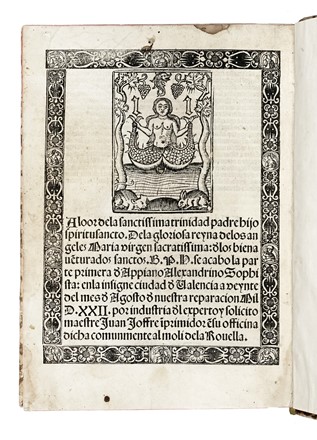 I I
A loor dela sanctissima trinidad padre hijo
spiritusancto. Dela gloriosa reyna delos an
geles Maria virgen sacratissima: dlos biena
uẽturados sanctos. G. P. N. se acabo la par
te primera đ Appiano Alexandrino Sophi
sta: enla insigne ciudad đ Ualencia a veynte
del mes đ Agosto đ nuestra reparacion Mil
D.XXII. por industria đl experto y solicito
maestre Juan Joffre ĩprimidor: ẽsu officina
dicha comunmente al moli dela Rouella.